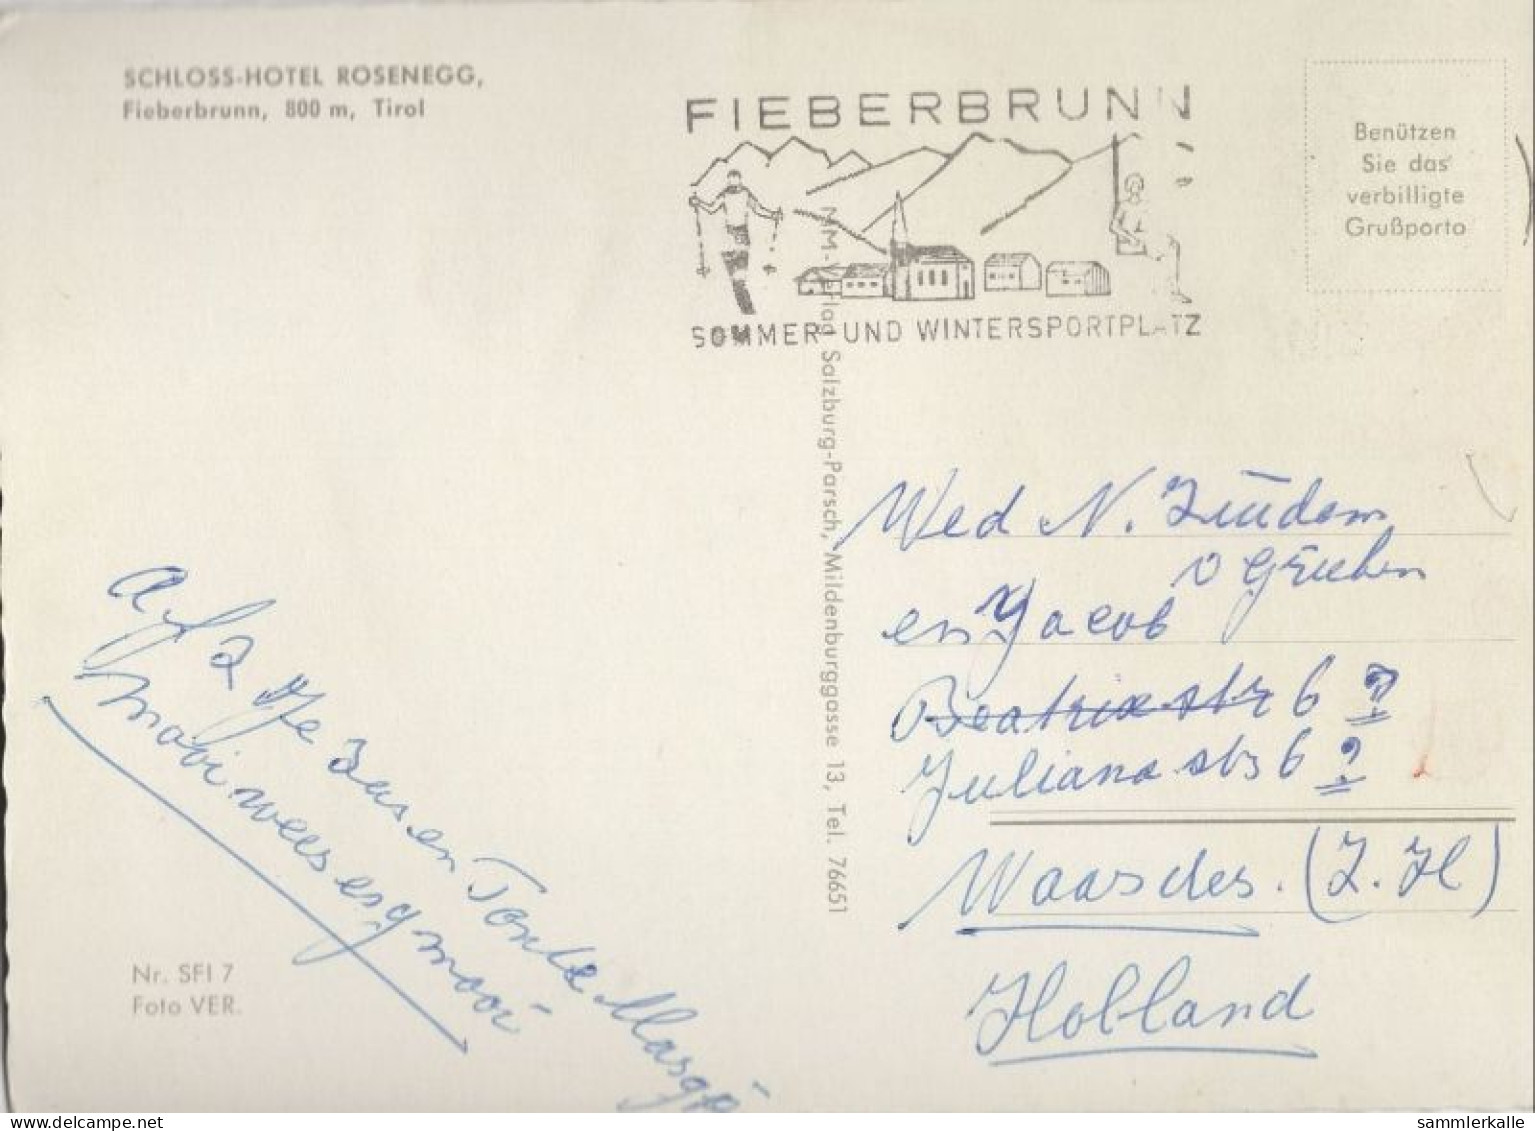 SCHLOSS-HOTEL ROSENEGG,
Fieberbrunn, 800 m, Tirol
FIEBERBRUNN
SOMMER- UND WINTERSPORTPLATZ
Benützen
Sie das
verbilligte
Grußporto
MM-Verlag Salzburg-Parsch, Mildenburggasse 13, Tel. 76651
Wed N.
en Jacob
Beatrixstr 6 ?
Juliana str 6 ?
(Z. H)
Holland
en Tante
mooi weer erg mooi
Nr. SFI 7
Foto VER.
delcampe.net
sammlerkalle